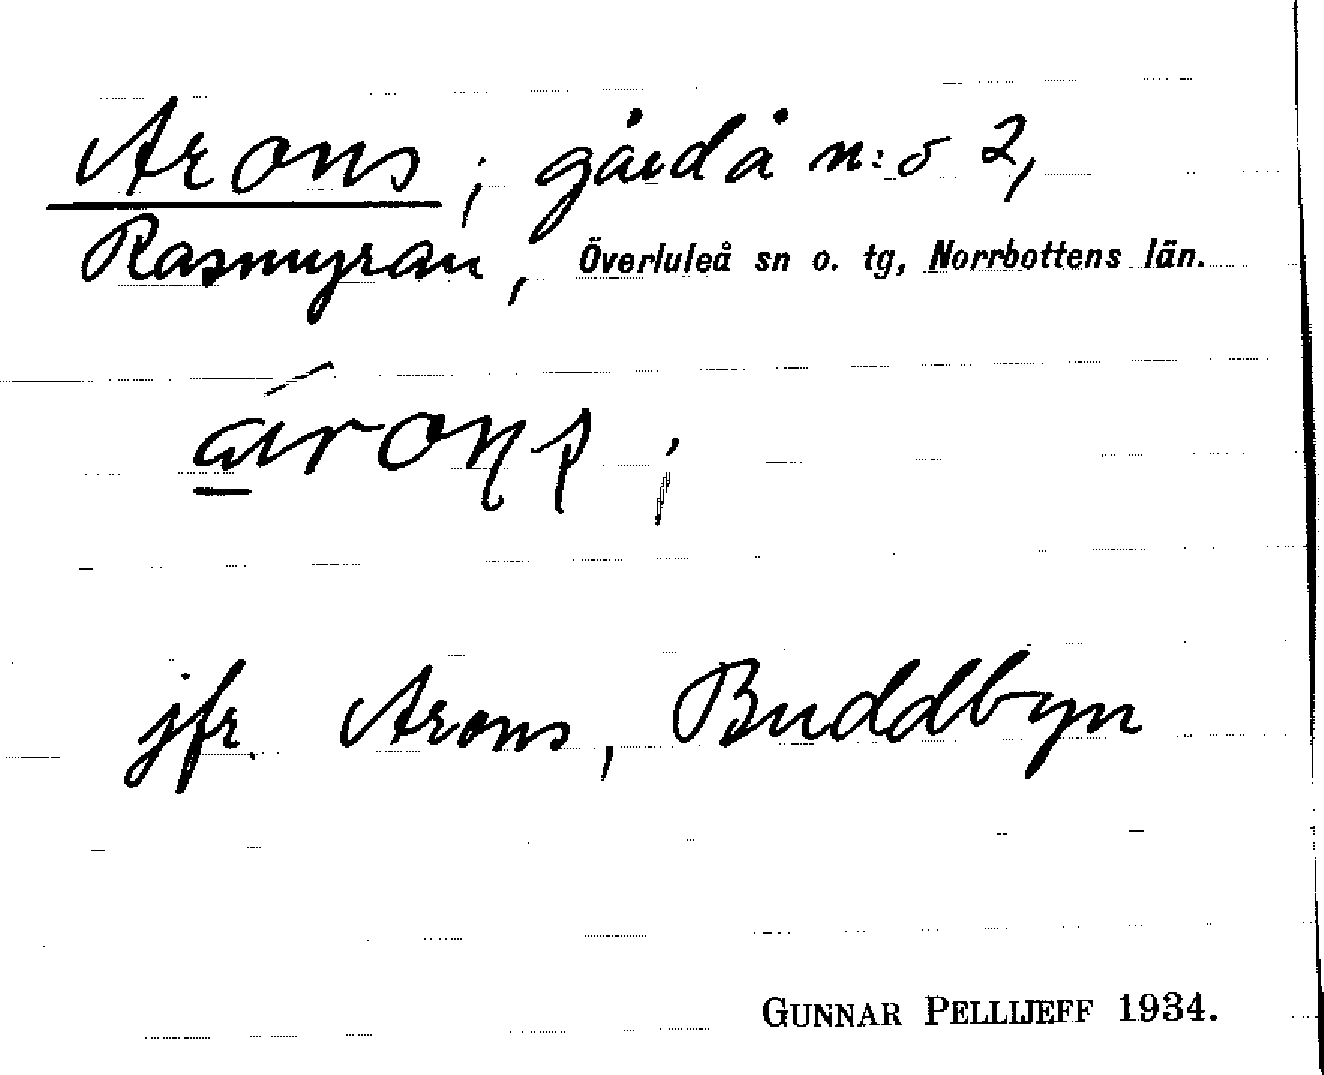 Arons ; gård å n:o 2,
Rasmyran, Överluleå sn o. tg, Norrbottens län.
jfr. Arons, Buddbyn
GUNNAR PELLIJEFF 1934.